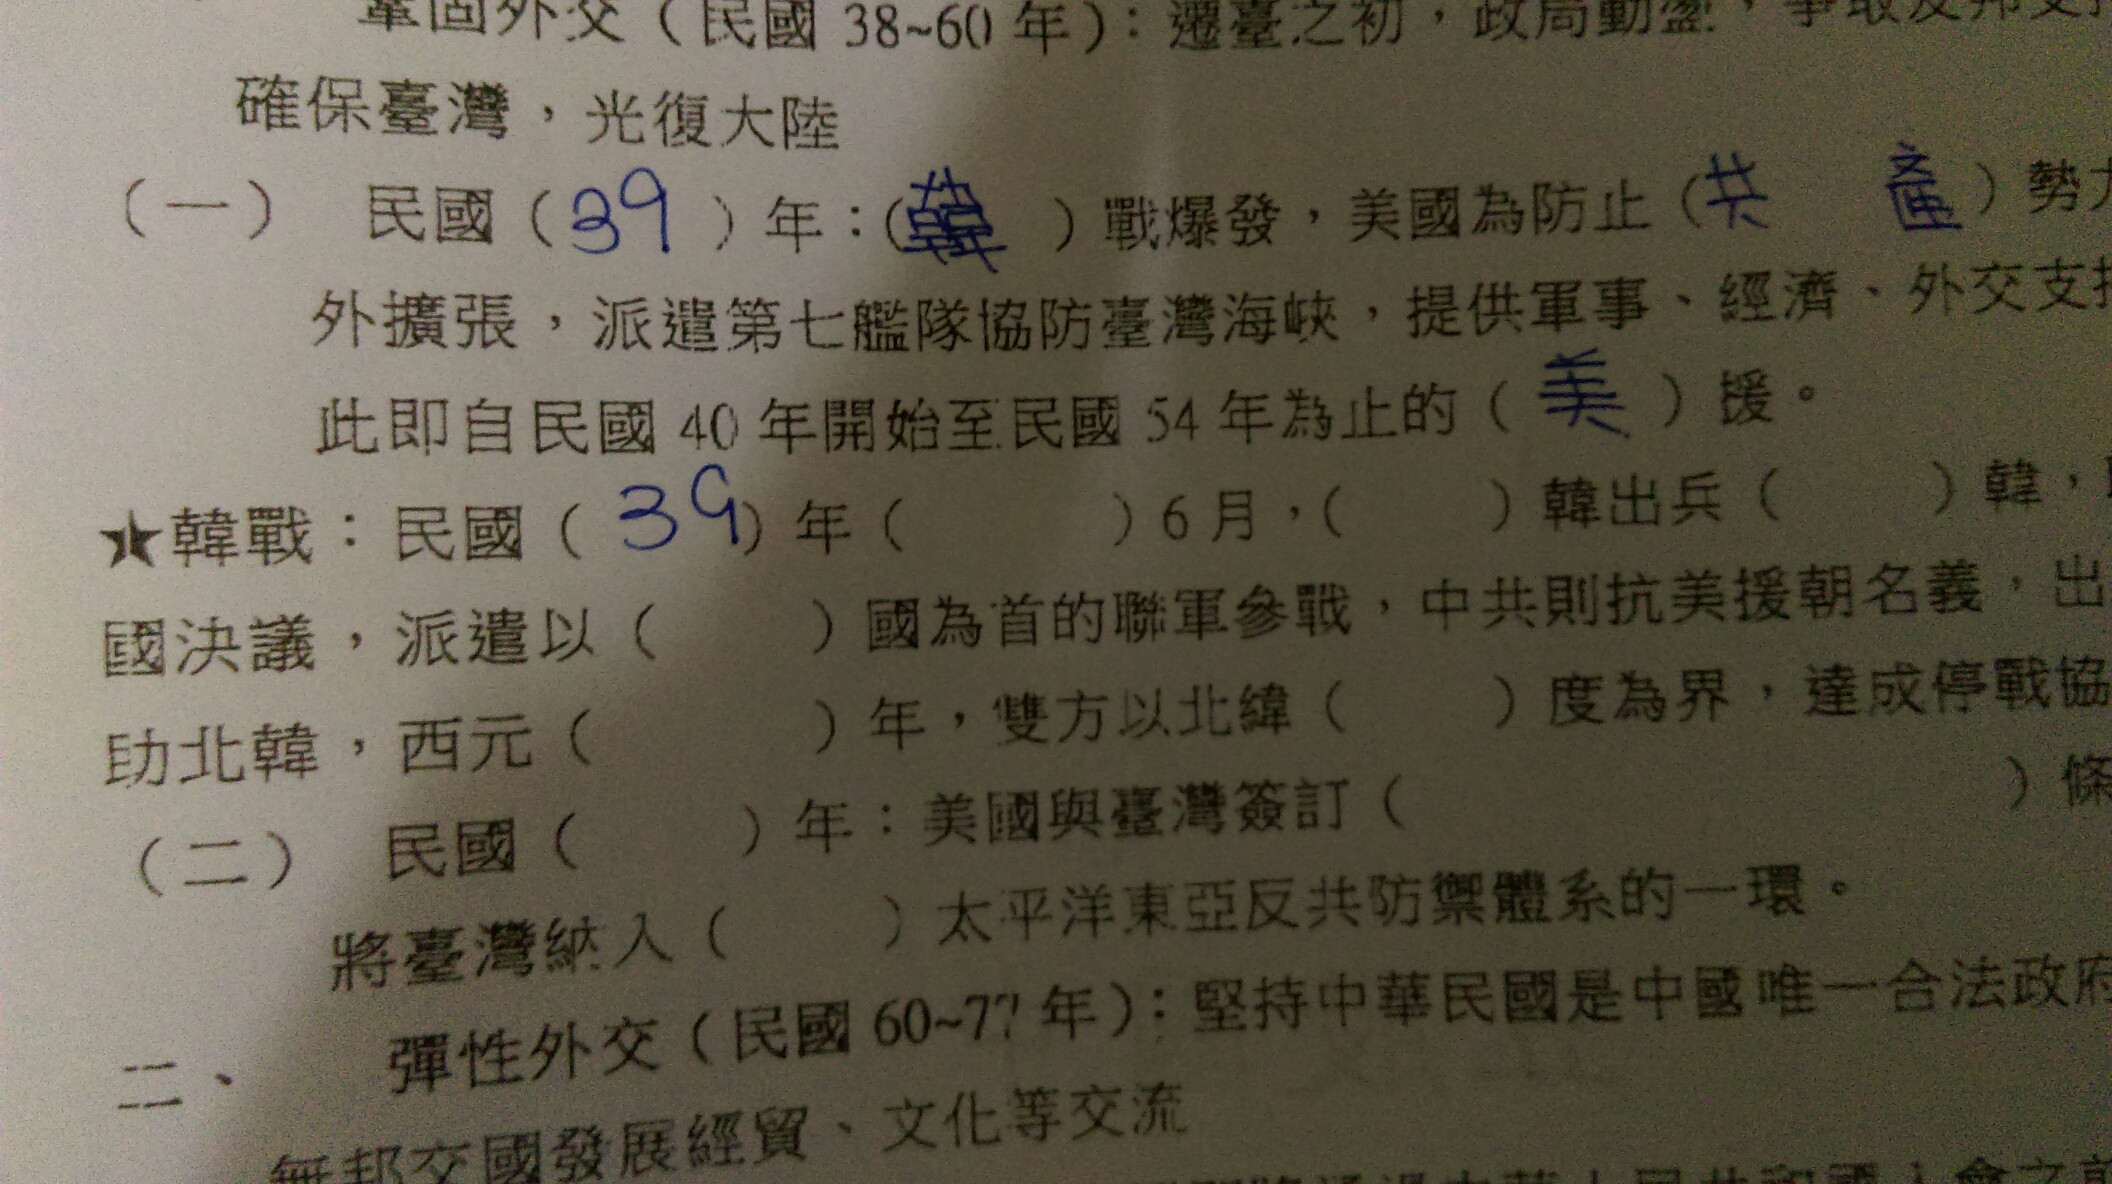 鞏固外交（民國 38~60 年）：遷臺之初，政局動盪，爭取友邦支
確保臺灣，光復大陸
（一） 民國（39）年：（韓）戰爆發，美國為防止（共 產）勢力
外擴張，派遣第七艦隊協防臺灣海峽，提供軍事、經濟、外交支
此即自民國 40 年開始至民國 54 年為止的（美）援。
★韓戰：民國（39）年（ ）6 月，（ ）韓出兵（ ）韓，
國決議，派遣以（ ）國為首的聯軍參戰，中共則抗美援朝名義，出
助北韓，西元（ ）年，雙方以北緯（ ）度為界，達成停戰協
（二） 民國（ ）年：美國與臺灣簽訂（ ）條
將臺灣納入（ ）太平洋東亞反共防禦體系的一環。
二、 彈性外交（民國 60~77 年）：堅持中華民國是中國唯一合法政府
無邦交國發展經貿、文化等交流